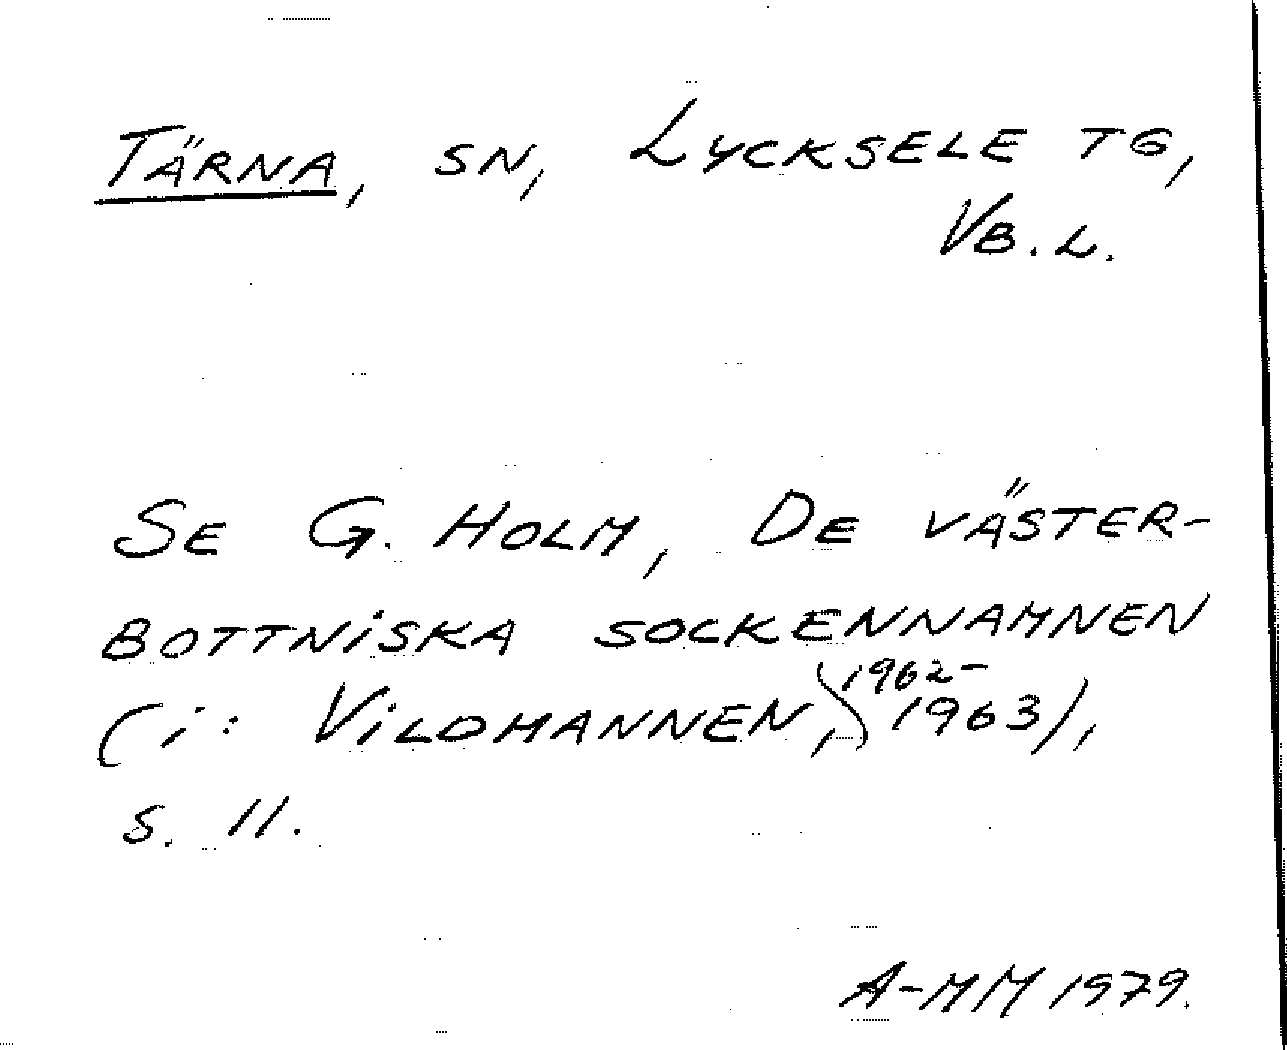 Tärna, sn, Lycksele tg,
Vb. l.
Se G. Holm, De väster-
bottniska sockennamnen
(i: Vildmannen, 1962-1963),
s. 11.
A-MM 1979.